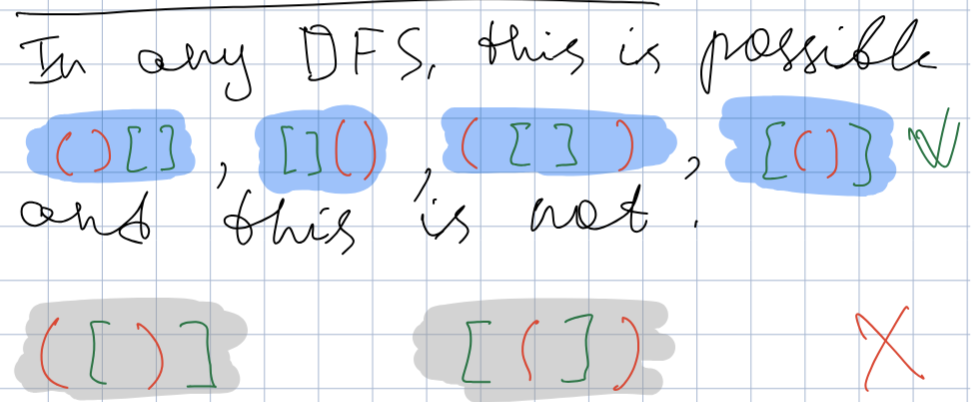 In any DFS, this is possible
()[], [](), ([]), [()]
and this is not.
([)] [(])